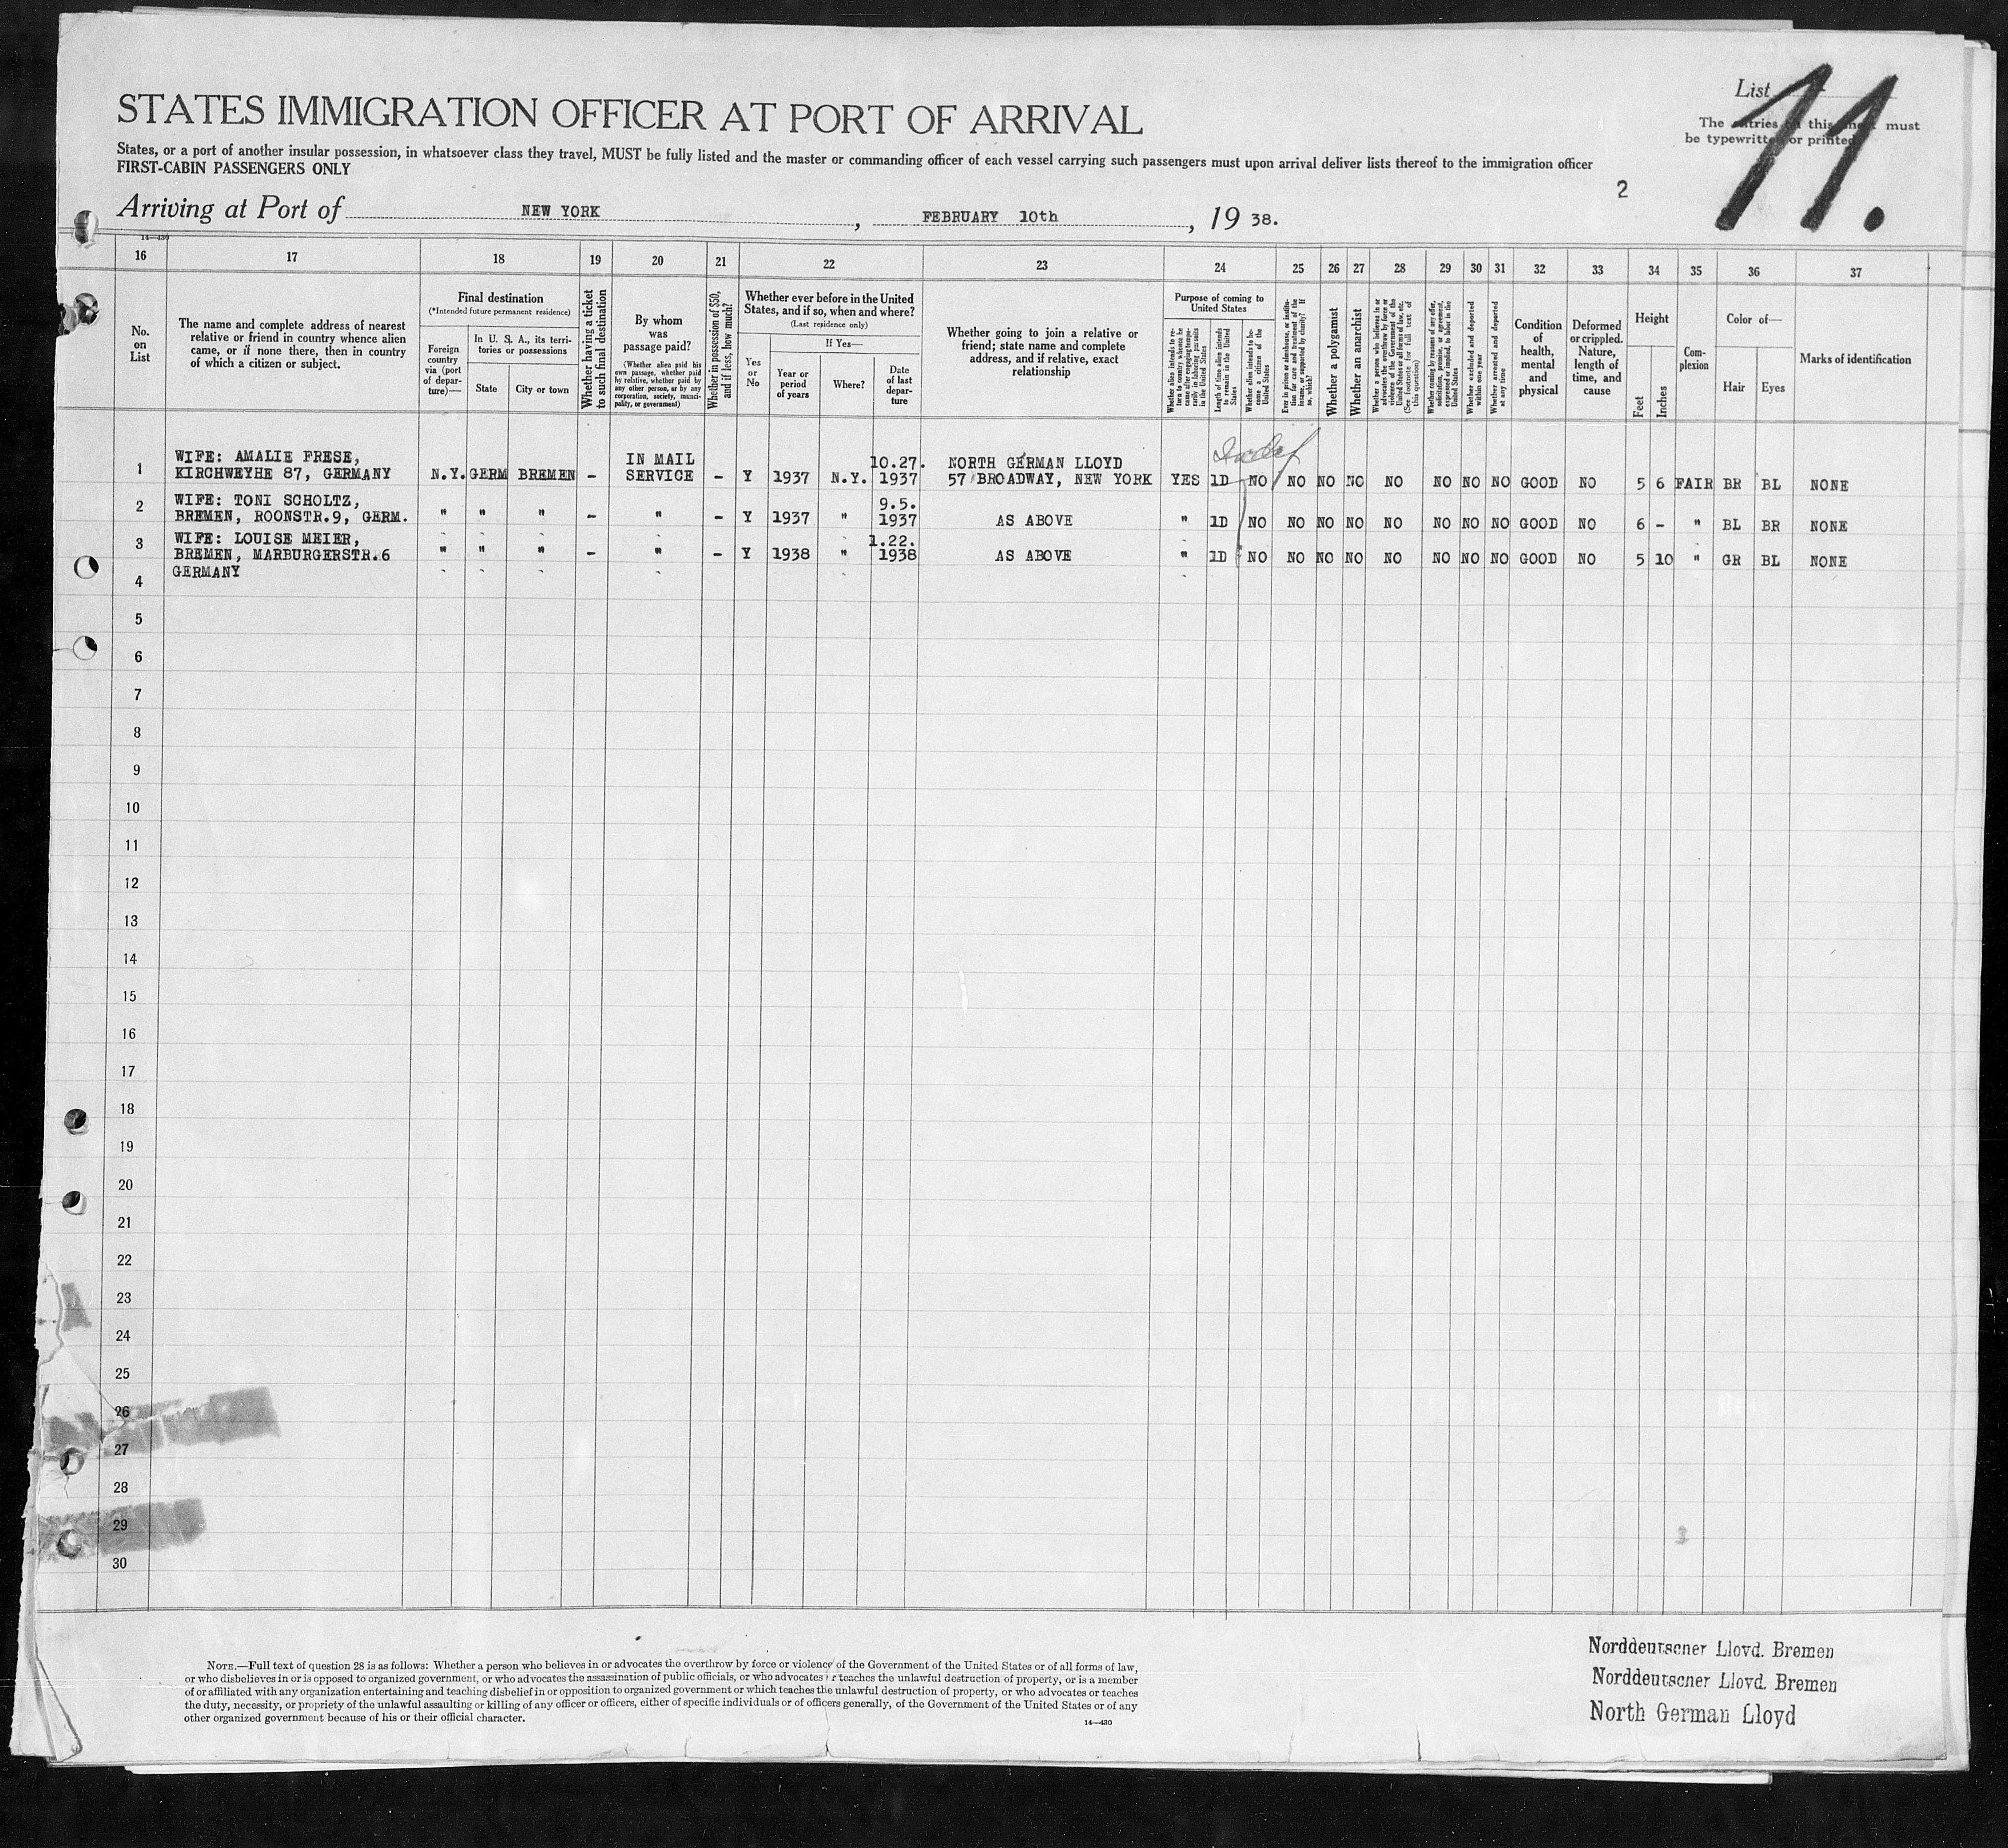 List 11.
STATES IMMIGRATION OFFICER AT PORT OF ARRIVAL
The entries on this sheet must
be typewritten or printed
States, or a port of another insular possession, in whatsoever class they travel, MUST be fully listed and the master or commanding officer of each vessel carrying such passengers must upon arrival deliver lists thereof to the immigration officer
FIRST-CABIN PASSENGERS ONLY
2
Arriving at Port of NEW YORK, FEBRUARY 10th, 19 38.
14—430
16 17 18 19 20 21 22 23 24 25 26 27 28 29 30 31 32 33 34 35 36 37
No. on List
The name and complete address of nearest relative or friend in country whence alien came, or if none there, then in country of which a citizen or subject.
Final destination
(*Intended future permanent residence)
Foreign country via (port of departure)—
In U. S. A., its territories or possessions
State
City or town
Whether having a ticket to such final destination
By whom was passage paid?
(Whether alien paid his own passage, whether paid by relative, whether paid by any other person, or by any corporation, society, municipality, or government)
Whether in possession of $50, and if less, how much?
Whether ever before in the United States, and if so, when and where?
(Last residence only)
Yes or No
If Yes—
Year or period of years
Where?
Date of last departure
Whether going to join a relative or friend; state name and complete address, and if relative, exact relationship
Purpose of coming to United States
Whether alien intends to return to country whence he came after engaging temporarily in laboring pursuits in the United States
Length of time alien intends to remain in the United States
Whether alien intends to become a citizen of the United States
Ever in prison or almshouse, or institution for care and treatment of the insane, or supported by charity? If so, which?
Whether a polygamist
Whether an anarchist
Whether a person who believes in or advocates the overthrow by force or violence of the Government of the United States or all forms of law, etc. (See footnote for full text of this question)
Whether coming by reason of any offer, solicitation, promise, or agreement, expressed or implied, to labor in the United States
Whether excluded and deported within one year
Whether arrested and deported at any time
Condition of health, mental and physical
Deformed or crippled. Nature, length of time, and cause
Height
Feet
Inches
Complexion
Color of—
Hair
Eyes
Marks of identification
Indef
1 WIFE: AMALIE FRESE, IN MAIL 10.27. NORTH GERMAN LLOYD
KIRCHWEYHE 87, GERMANY N.Y. GERM BREMEN - SERVICE - Y 1937 N.Y. 1937 57 BROADWAY, NEW YORK YES 1D NO NO NO NO NO NO NO NO GOOD NO 5 6 FAIR BR BL NONE
2 WIFE: TONI SCHOLTZ, 9.5.
BREMEN, ROONSTR.9, GERM. " " " - " - Y 1937 " 1937 AS ABOVE " 1D NO NO NO NO NO NO NO NO GOOD NO 6 - " BL BR NONE
3 WIFE: LOUISE MEIER, 1.22.
BREMEN, MARBURGERSTR.6 " " " - " - Y 1938 " 1938 AS ABOVE " 1D NO NO NO NO NO NO NO NO GOOD NO 5 10 " GR BL NONE
GERMANY
4
5
6
7
8
9
10
11
12
13
14
15
16
17
18
19
20
21
22
23
24
25
26
27
28
29
30
NOTE.—Full text of question 28 is as follows: Whether a person who believes in or advocates the overthrow by force or violence of the Government of the United States or of all forms of law,
or who disbelieves in or is opposed to organized government, or who advocates the assassination of public officials, or who advocates or teaches the unlawful destruction of property, or is a member
of or affiliated with any organization entertaining and teaching disbelief in or opposition to organized government or which teaches the unlawful destruction of property, or who advocates or teaches
the duty, necessity, or propriety of the unlawful assaulting or killing of any officer or officers, either of specific individuals or of officers generally, of the Government of the United States or of any
other organized government because of his or their official character.
14—430
Norddeutscher Lloyd. Bremen
Norddeutscher Lloyd. Bremen
North German Lloyd